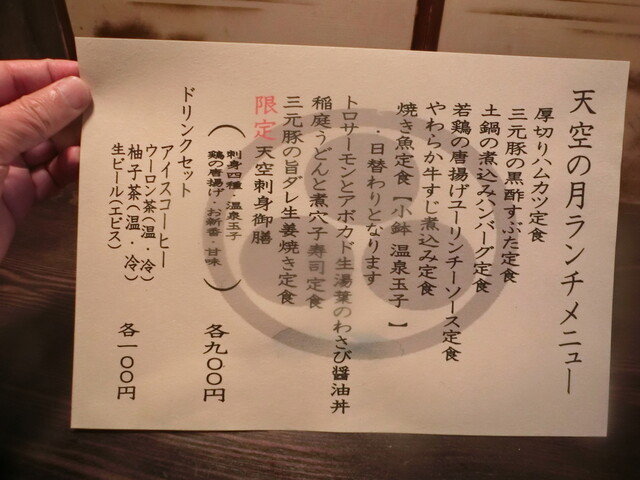 天空の月ランチメニュー
厚切りハムカツ定食
三元豚の黒酢すぶた定食
土鍋の煮込みハンバーグ定食
若鶏の唐揚げユーリンチーソース定食
やわらか牛すじ煮込み定食
焼き魚定食【小鉢 温泉玉子】
・日替わりとなります
トロサーモンとアボカド生湯葉のわさび醤油丼
稲庭うどんと煮穴子寿司定食
三元豚の旨ダレ生姜焼き定食
限定 天空刺身御膳
(刺身四種・温泉玉子
鶏の唐揚げ・お新香・甘味)
各九〇〇円
ドリンクセット
アイスコーヒー
ウーロン茶(温・冷)
柚子茶(温・冷)
生ビール(エビス)
各一〇〇円